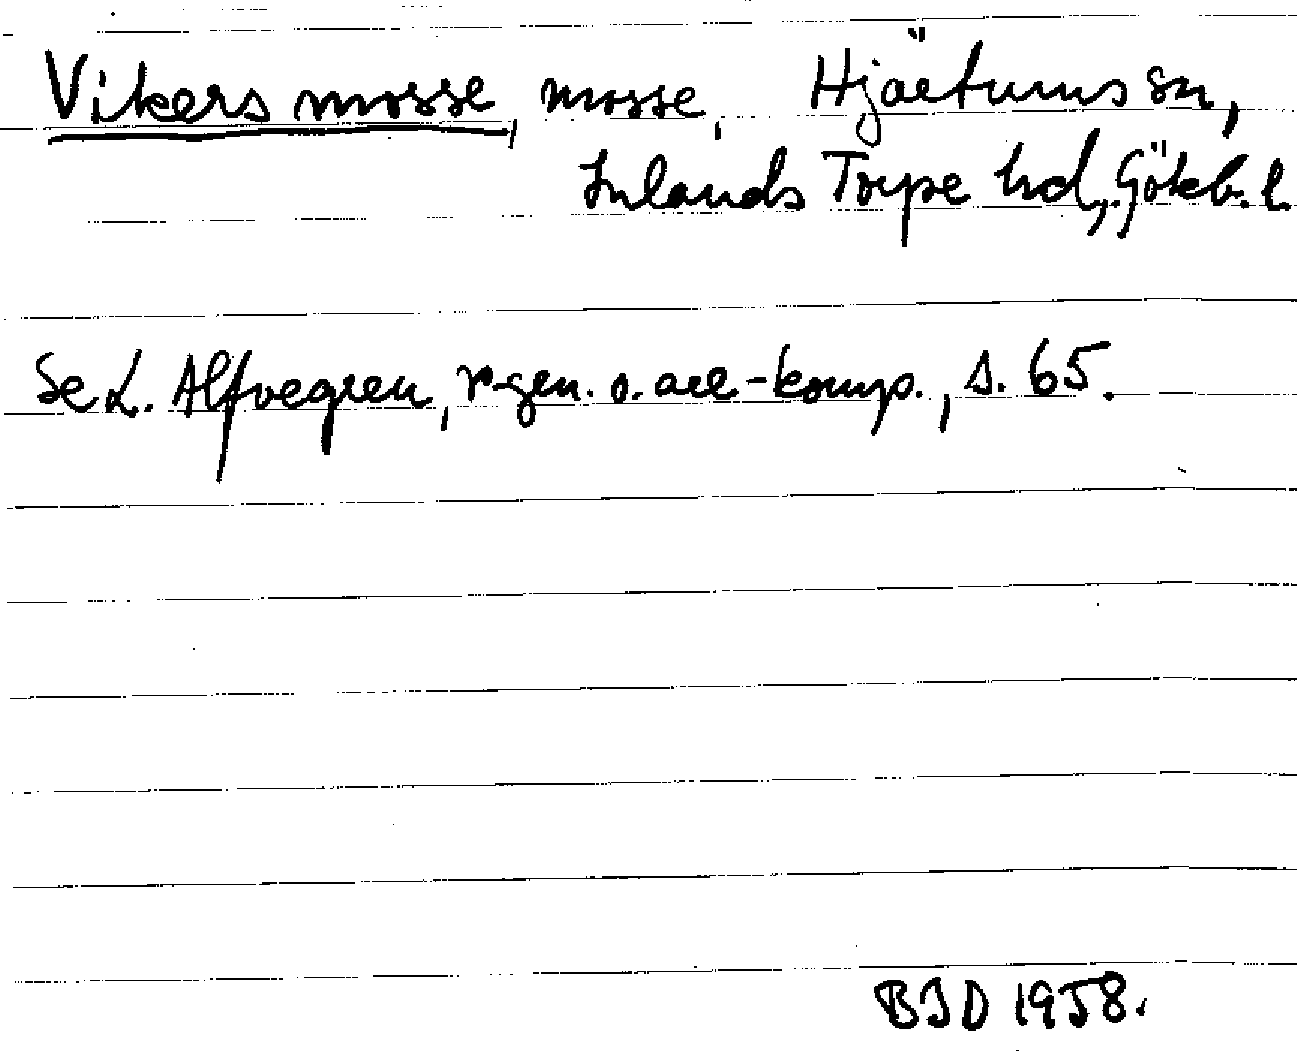 Vikers mosse, mosse, Hjärtums sn,
Inlands Torpe hd, Göteb. l.
Se L. Alfvegren, r-gen. o. ack-komp., s. 65.
BID 1958.